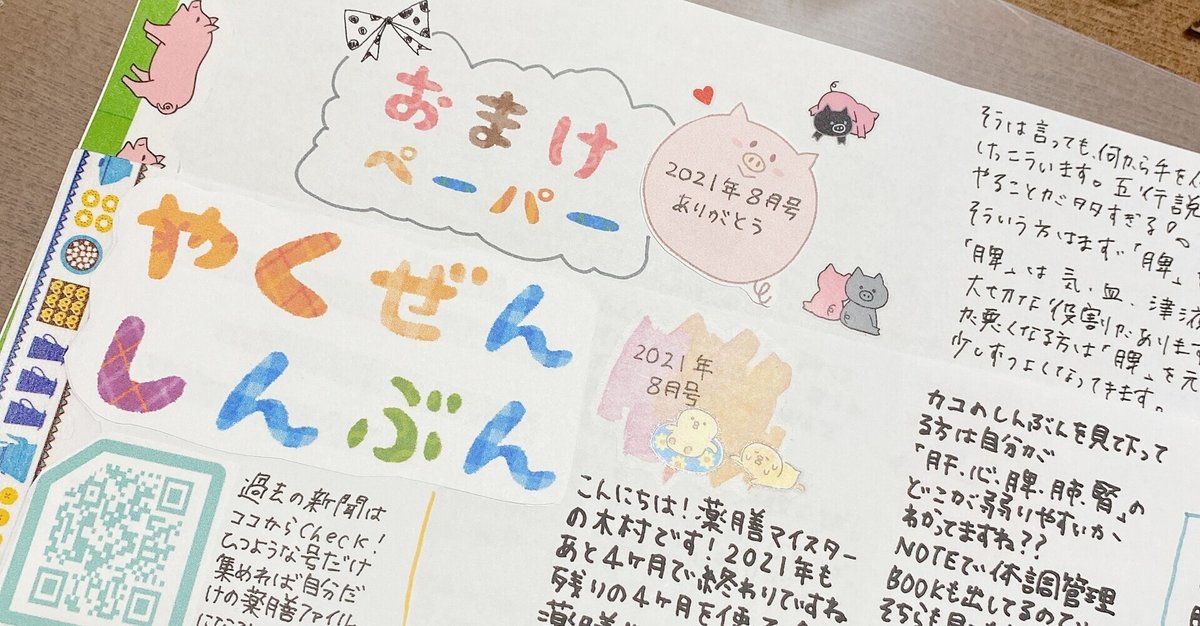 おまけ
ペーパー
2021年8月号
ありがとう
そうは言っても、何から手を
けっこういます。五行説
やることが多すぎる。
そういう方はまず「脾」
「脾」は気、血、津液
大切な役割があります
が悪くなる方は「脾」を元
少しずつよくなってきます。
やくぜん
しんぶん
2021年
8月号
過去の新聞は
ココからCheck!
ひつような号だけ
集めれば自分だ
けの薬膳ファイル
こんにちは!薬膳マイスター
の木村です!2021年も
あと4ヶ月で終わりですね
残りの4ヶ月を使って
カコのしんぶんを見て下って
る方は自分が
「肝・心・脾・肺・腎」の
どこが弱りやすいか、
わかってますね??
NOTEで体調管理
BOOKも出してるので